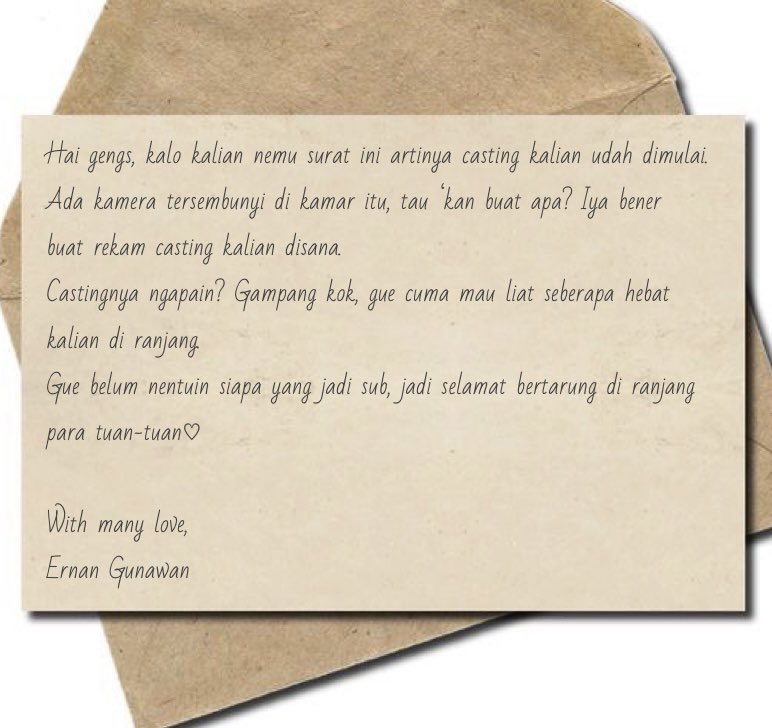 Hai gengs, kalo kalian nemu surat ini artinya casting kalian udah dimulai.
Ada kamera tersembunyi di kamar itu, tau ‘kan buat apa? Iya bener
buat rekam casting kalian disana.
Castingnya ngapain? Gampang kok, gue cuma mau liat seberapa hebat
kalian di ranjang.
Gue belum nentuin siapa yang jadi sub, jadi selamat bertarung di ranjang
para tuan-tuan♡
With many love,
Ernan Gunawan